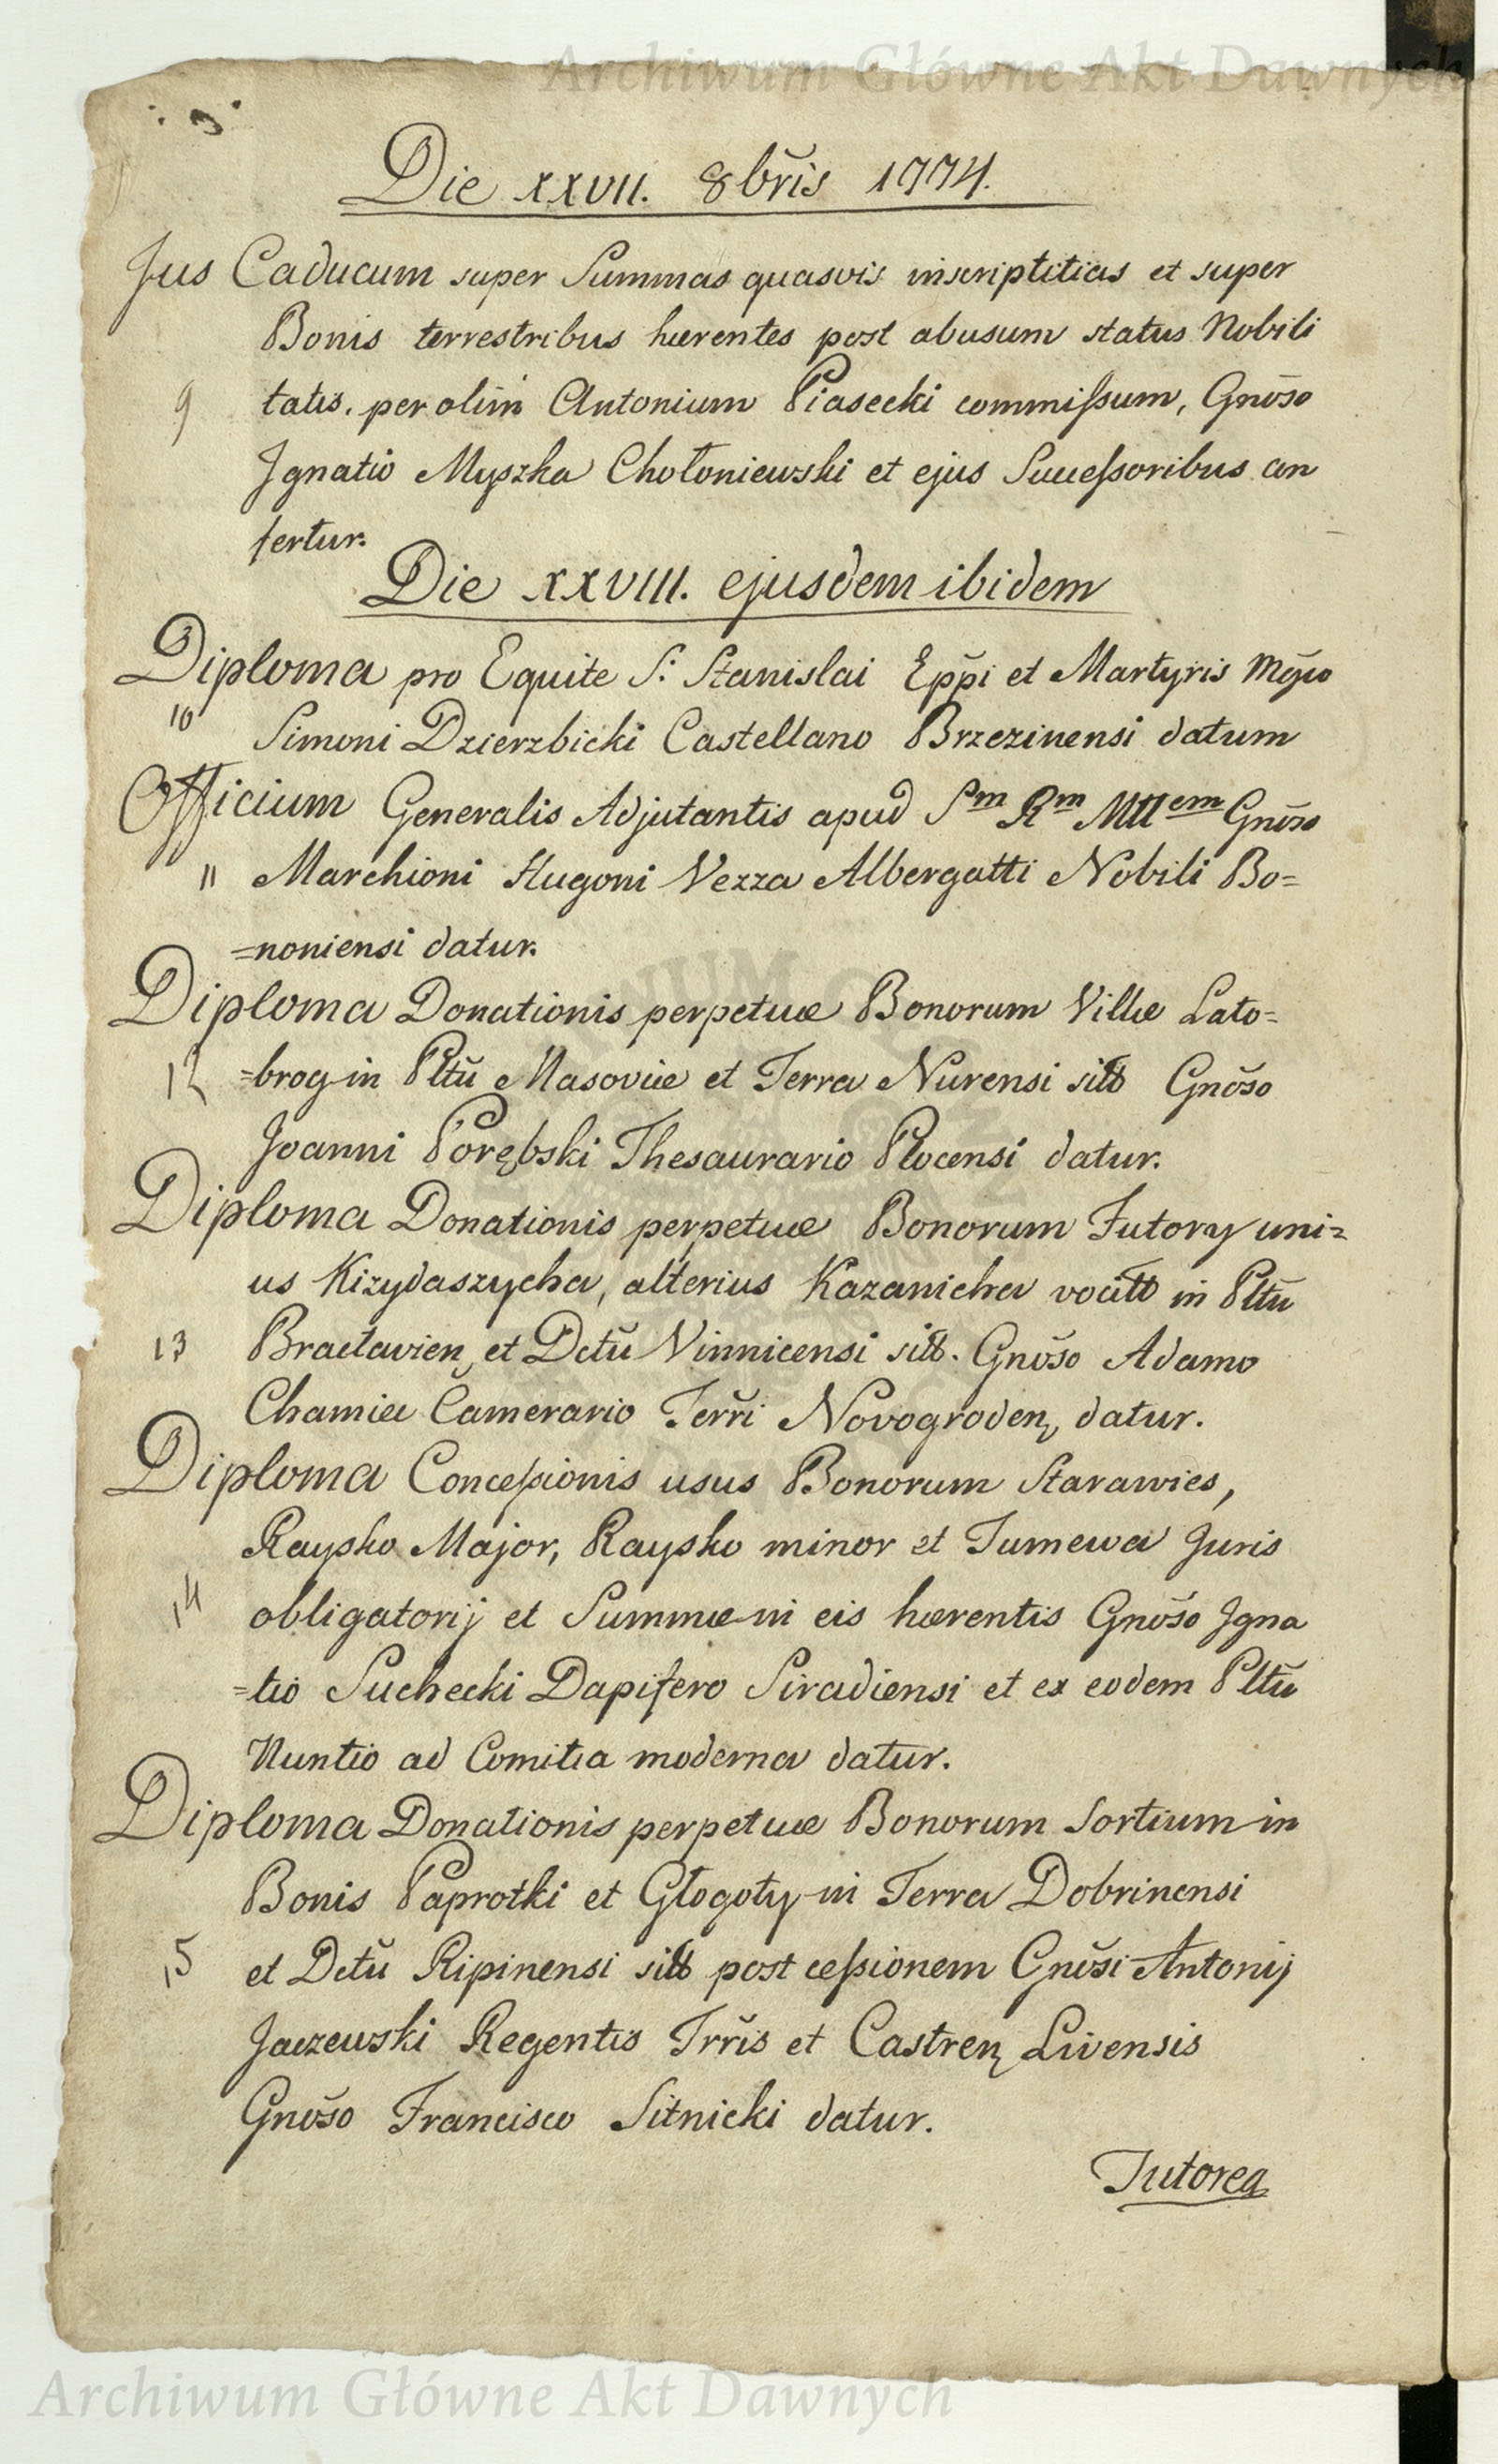 Archiwum Główne Akt Dawnych
3
Die XXVII. 8bris 1774.
Jus Caducum super Summas quasvis inscriptitias et super
Bonis terrestribus hærentes post abusum status Nobili
9 tatis. per olim Antonium Piasecki commißum, Gnõso
Ignatio Myszka Chołoniewski et ejus Succeßoribus con
fertur.
Die XXVIII. ejusdem ibidem
Diploma pro Equite S: Stanislai Eppi et Martyris Mgco
10 Simoni Dzierzbicki Castellano Brzezinensi datum
Officium Generalis Adjutantis apud Sm Rm Mttem Gnõso
11 Marchioni Hugoni Vezza Albergatti Nobili Bo=
=noniensi datur.
Diploma Donationis perpetuæ Bonorum Villæ Lato=
12 =brog in Pltũ Masoviæ et Terra Nurensi sitt Gnõso
Joanni Porębski Thesaurario Plocensi datur.
Diploma Donationis perpetuæ Bonorum Futory uni=
us Kizydaszycha, alterius Kazanicha vocitt in Pltũ
13 Braclavien et Dctũ Vinnicensi sitt. Gnõso Adamo
Chamiec Camerario Terri Novogroden datur.
Diploma Conceßionis usus Bonorum Starawies,
Raysko Major, Raysko minor et Tumewa Juris
14 obligatorij et Summæ in eis hærentis Gnõso Igna
=tio Suchecki Dapifero Siradiensi et ex eodem Pltũ
Nuntio ad Comitia moderna datur.
Diploma Donationis perpetuæ Bonorum Sortium in
Bonis Paprotki et Głogoły in Terra Dobrinensi
15 et Dctũ Ripinensi sitt post ceßionem Gnõsi Antonij
Jaczewski Regentis Trris et Castren Livensis
Gnõso Francisco Sitnicki datur.
Tutorea
Archiwum Główne Akt Dawnych